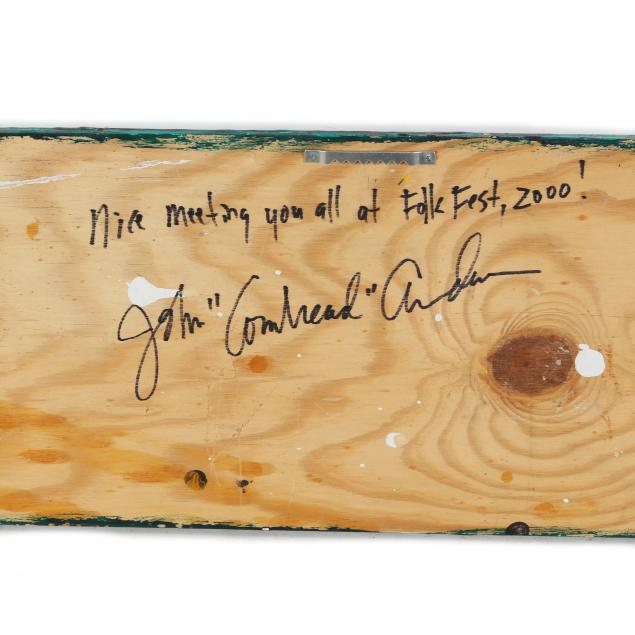 Nice meeting you all at Folk Fest, 2000!
John "Cornhead"